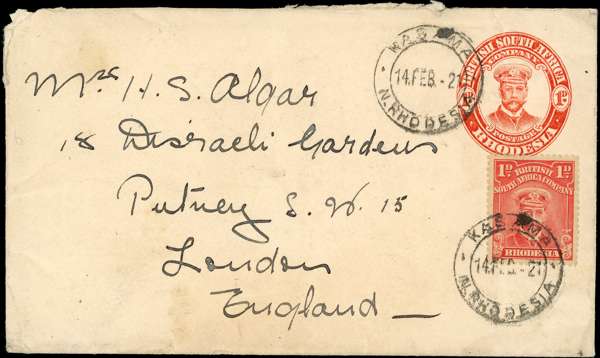 KASAMA
14.FEB.-21
N.RHODESIA
BRITISH SOUTH AFRICA
COMPANY
1D
POSTAGE
RHODESIA
Mrs H. S. Algar
18 Disraeli Gardens
Putney S. W. 15
London
England
1D. 1D.
BRITISH
SOUTH AFRICA COMPANY
RHODESIA
KASAMA
14.FEB.-21
N.RHODESIA